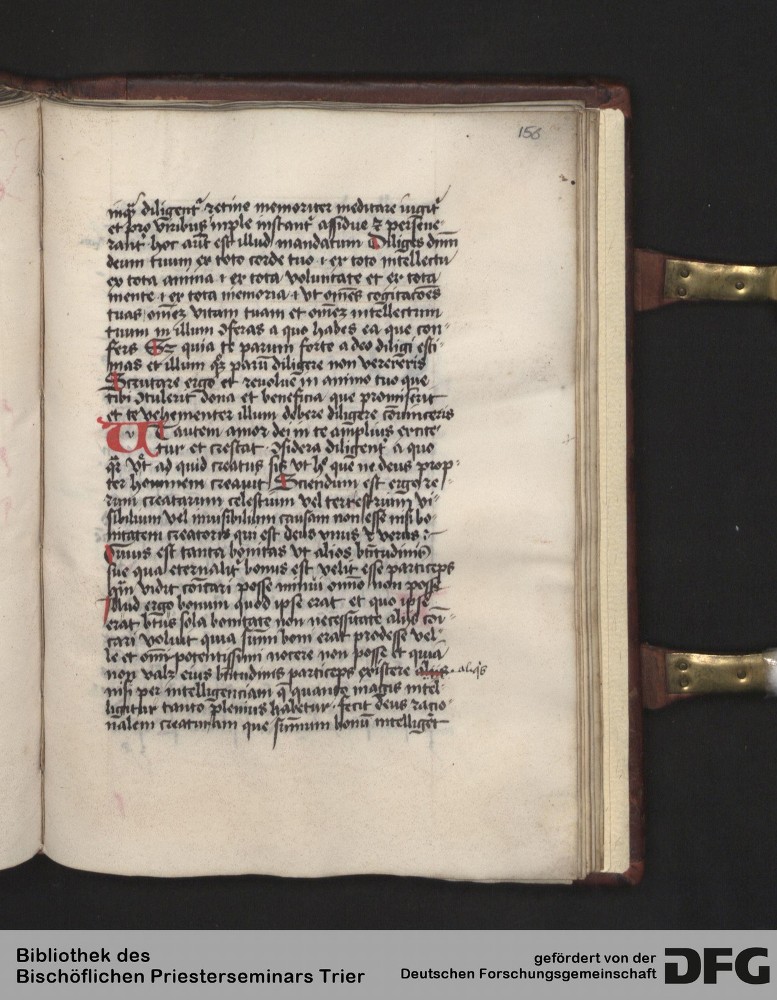 156
inquā diligent᷑ retine memoriter meditare iugit᷑
et pro viribus imple instant᷑ assidue ⁊ perseue
rant᷑ hoc aūt est illud mandatum Diliges dnm̄
deum tuum ex toto corde tuo ⁊ ex toto intellectu
ex tota anima ⁊ ex tota voluntate et ex tota
mente ⁊ ex tota memoria ⁊ vt om̄es cogitacōes
tuas om̄ez vitam tuam et om̄ez intellectum
tuum in illum ꝯferas a quo habes ea que con⸗
fers Et quia te parum forte a deo diligi esti
mas et illum parū diligere non vereris
Scrutare ergo et reuolue in animo tuo que
tibi ꝯtulerit dona et beneficia que promiserit
et te vehementer illum debere diligere
Ut autem amor dei in te amplius excite
tur et crescat ꝯsidera diligent᷑ a quo
qr̄ vt᷑ ad quid creatus sis vt hꝫ que ne deus prop⸗
ter hominem creauit Sciendum est ergo re⸗
rum creatarum celestium vel terrestrium vi⸗
sibilium vel inuisibilium causam non esse nisi bo⸗
nitatem creatoris qui est deus vnus ⁊ verus
Cuius est tanta bonitas vt alios bt̄itudinis
sue qua eternalit᷑ bonus est velit esse particeps
qm̄ vidit cōicari posse minui om̄īo non posse
Illud ergo bonum quod ipse erat et quo ipse
erat bt̄us sola bonitate non necessitate alijs cōi⸗
cari voluit quia sum̄i boni erat prodesse vel⸗
le et om̄i potentissimi nocere non posse Et quia
non valꝫ eius bt̄itudinis particeps existere alijs aliq̄s
nisi per intelligenciam q̄ quanto magis intel⸗
ligitur tanto plenius habetur fecit deus racio⸗
nalem creaturam que sum̄um bonū intelliget᷑
Bibliothek des
Bischöflichen Priesterseminars Trier
gefördert von der
Deutschen Forschungsgemeinschaft
DFG